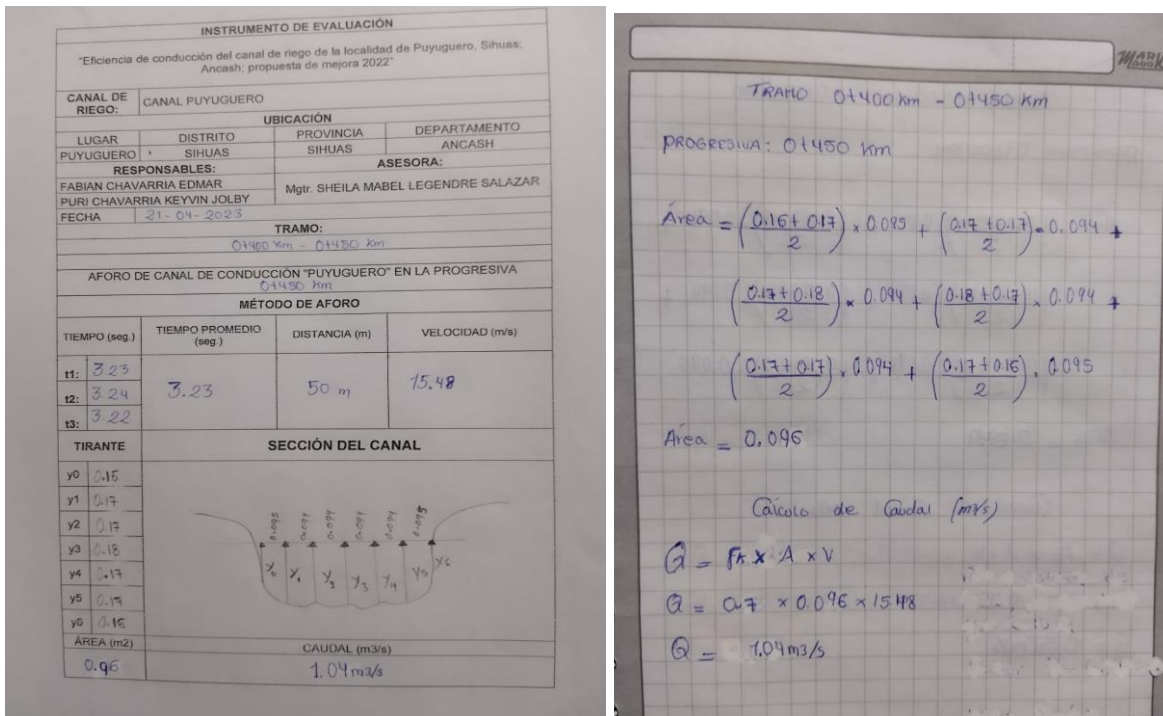 INSTRUMENTO DE EVALUACIÓN
"Eficiencia de conducción del canal de riego de la localidad de Puyuguero, Sihuas;
Ancash; propuesta de mejora 2022"
CANAL DE RIEGO: CANAL PUYUGUERO
UBICACIÓN
LUGAR DISTRITO PROVINCIA DEPARTAMENTO
PUYUGUERO SIHUAS SIHUAS ANCASH
RESPONSABLES: ASESORA:
FABIAN CHAVARRIA EDMAR
PURI CHAVARRIA KEYVIN JOLBY
Mgtr. SHEILA MABEL LEGENDRE SALAZAR
FECHA 21-04-2023
TRAMO:
0+400 Km - 0+450 Km
AFORO DE CANAL DE CONDUCCIÓN "PUYUGUERO" EN LA PROGRESIVA
0+450 Km
MÉTODO DE AFORO
TIEMPO (seg.) TIEMPO PROMEDIO (seg.) DISTANCIA (m) VELOCIDAD (m/s)
t1: 3.23
t2: 3.24
t3: 3.22
3.23 50 m 15.48
TIRANTE SECCIÓN DEL CANAL
y0 0.16
y1 0.17
y2 0.17
y3 0.18
y4 0.17
y5 0.17
y6 0.16
0.095 0.094 0.094 0.094 0.094 0.095
Y0 Y1 Y2 Y3 Y4 Y5 Y6
ÁREA (m2) CAUDAL (m3/s)
0.96 1.04 m3/s
MARK BOOK
TRAMO 0+400 Km - 0+450 Km
PROGRESIVA: 0+450 Km
Área = (0.16 + 0.17 / 2) x 0.095 + (0.17 + 0.17 / 2) x 0.094 +
(0.17 + 0.18 / 2) x 0.094 + (0.18 + 0.17 / 2) x 0.094 +
(0.17 + 0.17 / 2) x 0.094 + (0.17 + 0.16 / 2) x 0.095
Área = 0.096
Cálculo de Caudal (m3/s)
Q = Fk x A x V
Q = 0.7 x 0.096 x 15.48
Q = 1.04 m3/s